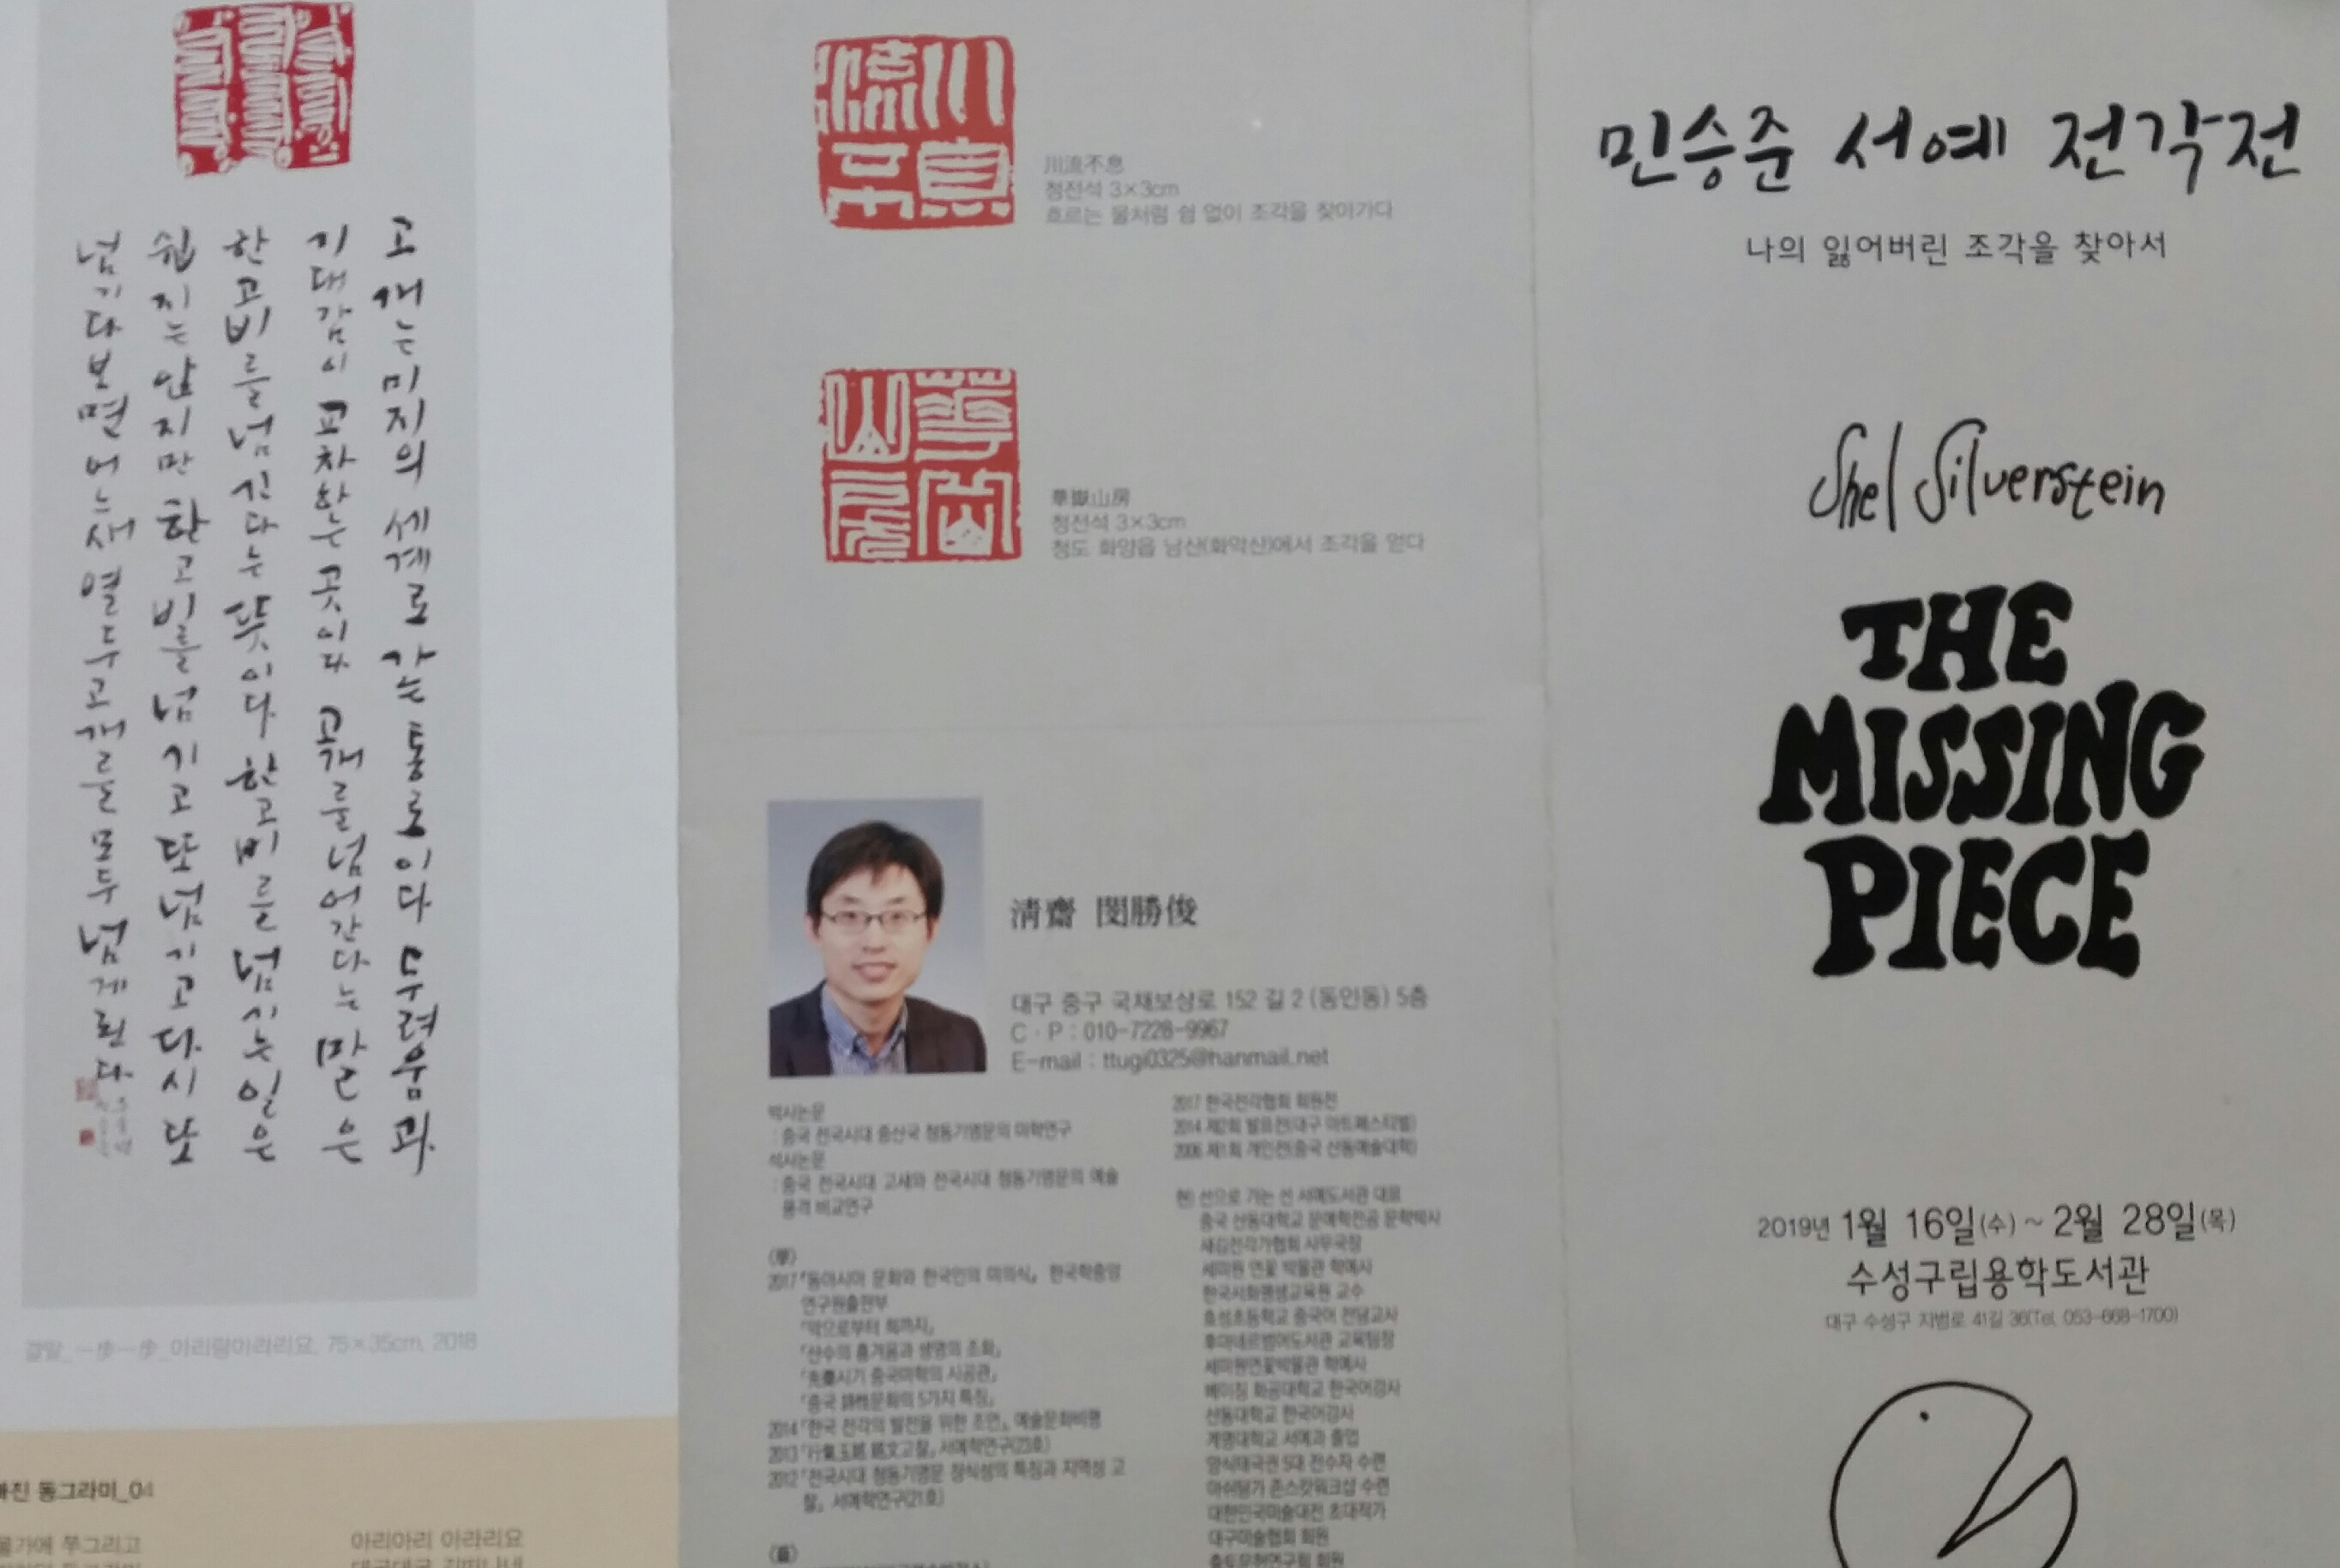 고개는 미지의 세계로 가는 통로이다 두려움과
기대감이 교차하는 곳이다 고개를 넘어간다는 말은
한고비를 넘긴다는 뜻이다 한고비를 넘기는 일은
쉽지는 않지만 한고비를 넘기고 또 넘기고 다시 또
넘기다보면 어느새 열두고개를 모두 넘게 된다
결말_一步一步_아리랑아라리요, 75×35cm, 2018
빠진 동그라미_04
물가에 쭈그리고
아리아리 아라리요
川流不息
청전석 3×3cm
흐르는 물처럼 쉼 없이 조각을 찾아가다
華嶽山房
청전석 3×3cm
청도 화양읍 남산(화악산)에서 조각을 얻다
淸齋 閔勝俊
대구 중구 국채보상로 152 길 2 (동인동) 5층
C · P : 010-7228-9967
E-mail : ttugi0325@hanmail.net
박사논문
: 중국 전국시대 중산국 청동기명문의 미학연구
석사논문
: 중국 전국시대 고새와 전국시대 청동기명문의 예술
풍격 비교연구
2017 「동아시아 문화와 한국인의 미의식」 한국학중앙
연구원출판부
「악으로부터 희까지」
「산수의 흥겨움과 생명의 조화」
「先秦시기 중국미학의 시공관」
「중국 문화의 5가지 특징」
2014 「한국 전각의 발전을 위한 조언」, 예술문화비평
2013 「行氣玉銘 銘文고찰」, 서예학연구(23호)
2012 「전국시대 청동기명문 장식성의 특징과 지역성 고
찰」, 서예학연구(21호)
2017 한국전각협회 회원전
2014 제2회 발표전(대구 아트페스티벌)
2006 제1회 개인전(중국 산동예술대학)
현) 선으로 가는 선 서예도서관 대표
중국 산동대학교 문예학전공 문학박사
새김전각가협회 사무국장
세미원 연꽃 박물관 학예사
한국서화평생교육원 교수
효성초등학교 중국어 전담교사
후마네르범어도서관 교육팀장
세미원연꽃박물관 학예사
베이징 화공대학교 한국어강사
산동대학교 한국어강사
계명대학교 서예과 졸업
양식태극권 5대 전수자 수련
아쉬탕가 존스캇워크샵 수련
대한민국미술대전 초대작가
대구미술협회 회원
출토문헌연구회 회원
민승준 서예 전각전
나의 잃어버린 조각을 찾아서
Shel Silverstein
THE
MISSING
PIECE
2019년 1월 16일(수) ~ 2월 28일(목)
수성구립용학도서관
대구 수성구 지범로 41길 36(Tel. 053-668-1700)